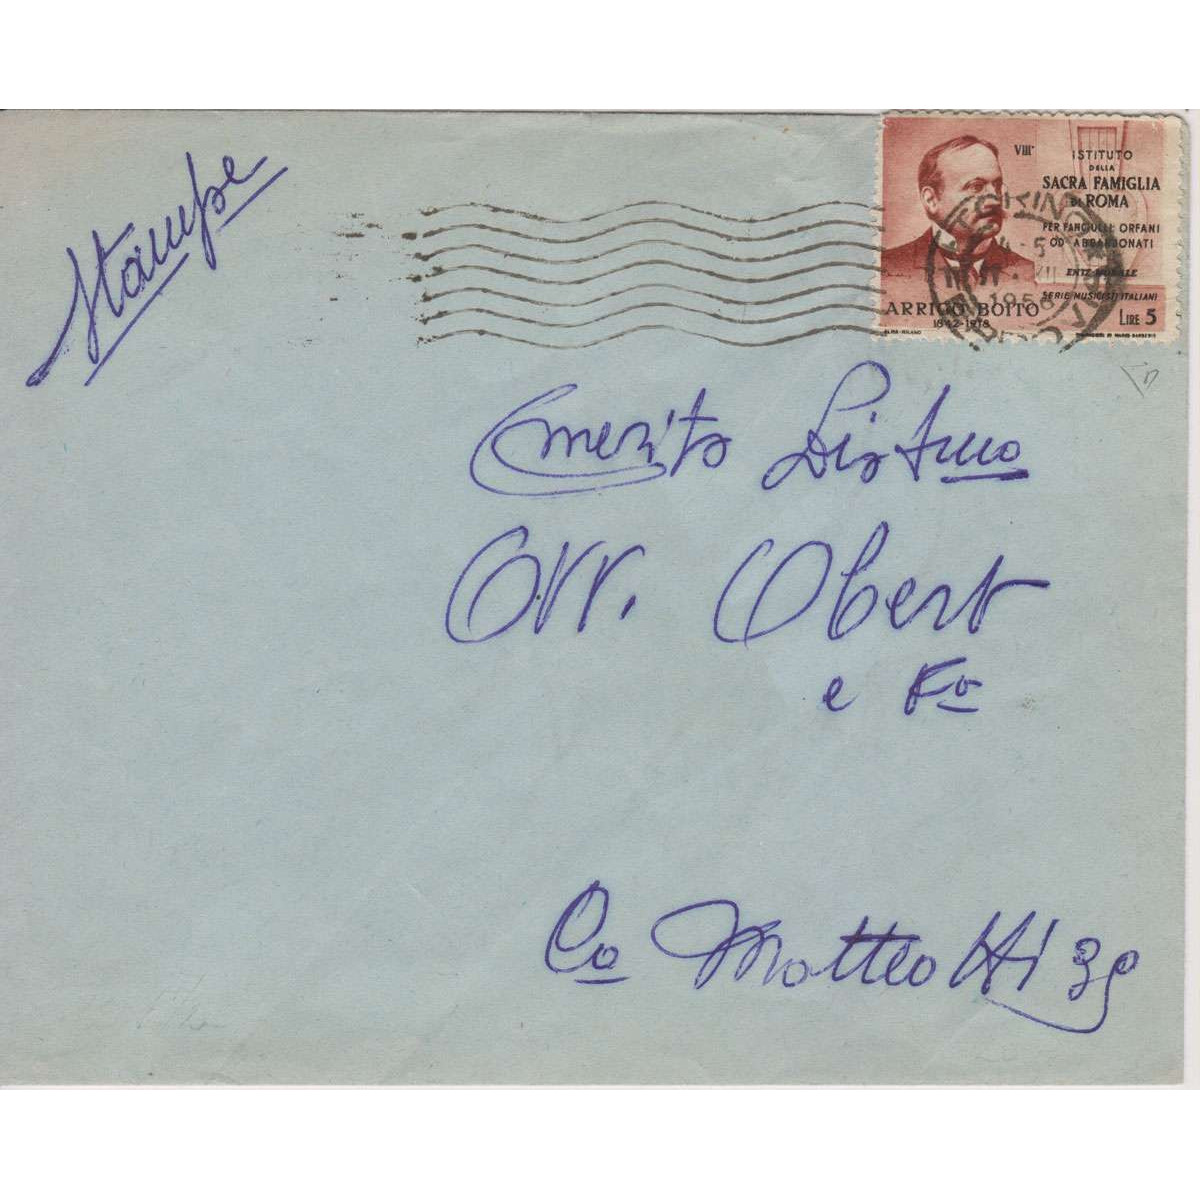 Stampe
VIIIª
ISTITUTO
DELLA
SACRA FAMIGLIA
DI ROMA
PER FANCIULLI ORFANI
OD ABBANDONATI
ENTE MORALE
SERIE MUSICISTI ITALIANI
ARRIGO BOITO
1842-1918
LIRE 5
TORINO
1956
Orr. Obert
e Fo
Co Matteotti 39